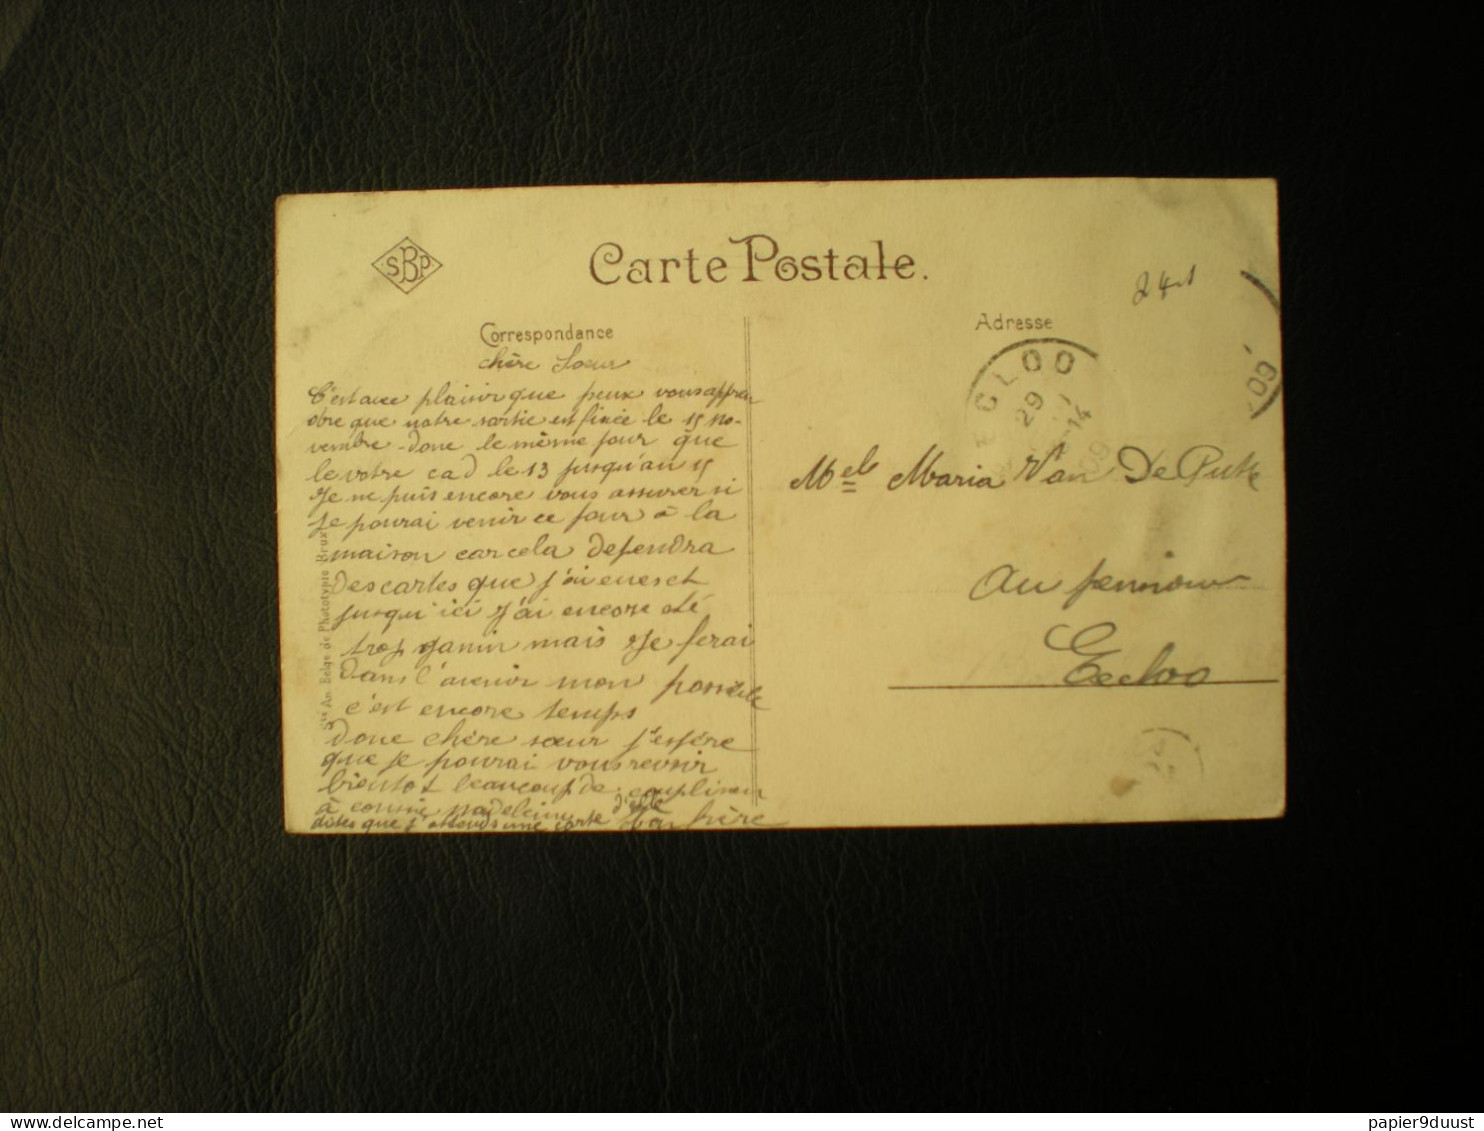 SBP
Carte Postale.
Correspondance
chère Soeur
C'est avec plaisir que peux vous appren
dre que notre sortie est fixée le 15 no-
vembre donc le même jour que
le votre cad le 13 jusqu'au 15
Je ne puis encore vous assurer si
je pourai venir ce jour à la
maison car cela défendra
des cartes que j'ai eues et
jusqu'ici j'ai encore été
trop gamin mais je ferai
dans l'avenir mon possible
c'est encore temps
Donc chère sœur j'espére
que je pourai vous revoir
bientot beaucoup de complimen
à Madeleine
dites que j'attends une carte d'elle
Ton frère
Sté An. Belge de Phototypie Brux
Adresse
24
ECLOO
29
14
09
09
Mel Maria Van De Putte
au pensionnat
Eecloo
papier9duust